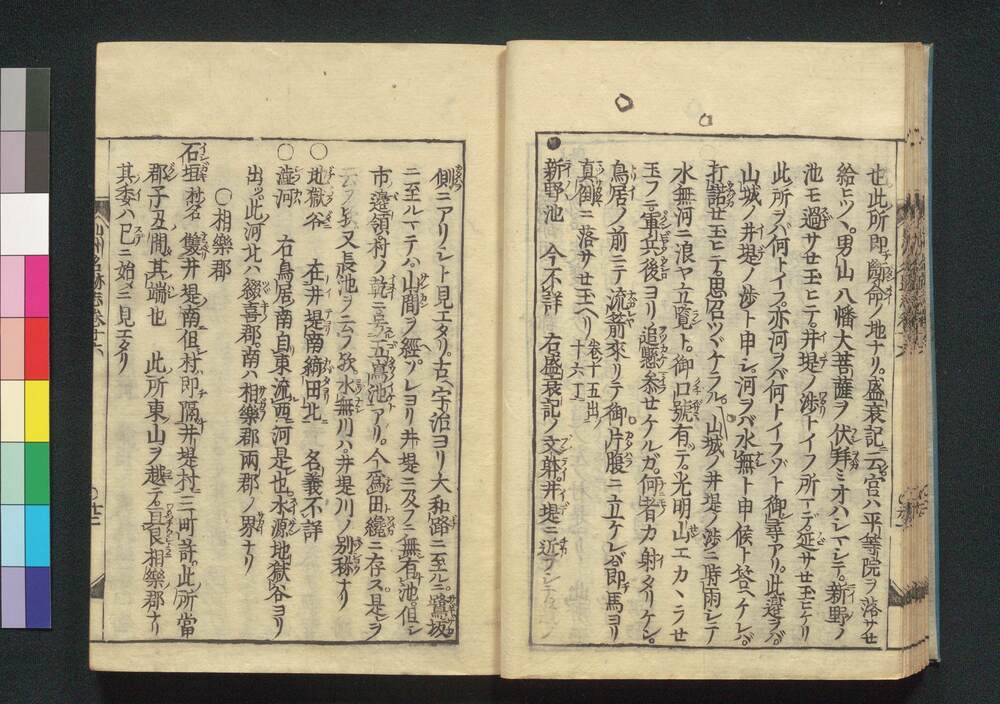 也此所即隕命ノ地ナリ。盛衰記ニ云。宮ハ平等院ヲ落サセ
給ヒツヽ。男山八幡大菩薩ヲ伏拜ミオハシマシテ。新野ノ
池モ過サセ玉ヒテ。井堤ノ渉トイフ所マデ延サセ玉ヒケリ
此所ヲバ何トイフ。亦河ヲバ何トイフゾト御尋アリ。此邊ヲバ。
山城ノ井堤ノ渉ト申シ。河ヲバ水無ト申候ト答ヘケレバ。
打諾セ玉ヒテ。思召ツヾケラル。山城ノ井堤ノ渉ニ時雨シテ
水無河ニ浪ヤ立覽ト。御口號有テ。光明山エカヽラセ
玉フテ。軍兵後ヨリ追懸参セケルガ。何者カ射タリケン。
鳥居ノ前ニテ流箭來リテ御片腹ニ立ケレバ。即馬ヨリ
真倒ニ落サセ玉ヘリ 巻十五出ノ十六丁
新野池 今不詳 右盛衰記ノ文勢。井堤ニ近フシテ
側ニアリシト見エタリ。古ヘ宇治ヨリ大和路ニ至ルニ。鷺坂
ニ至ルマテハ。山間ヲ經。ソレヨリ井堤ニ及フニ無有池。但シ
市邊領府ノ乾ニ号 池アリ。今爲田纔ニ存ス。是ヲ
云フ歟又長池ヲ云フ歟水無川ハ。井堤川ノ別称ナリ
○地獄谷 在井堤南綺田北 名義不詳
○澁河 右鳥居南自東流西河是也。水源地獄谷ヨリ
出ツ。此河北ハ綴喜郡。南ハ相樂郡兩郡ノ界ナリ
○相樂郡
石垣 村名 井堤南但村即隔井堤村三町許。此所當
郡子丑間其端也 此所東山ヲ越テ。亘良相樂郡ナリ
其委ハ已ニ始メニ見エタリ